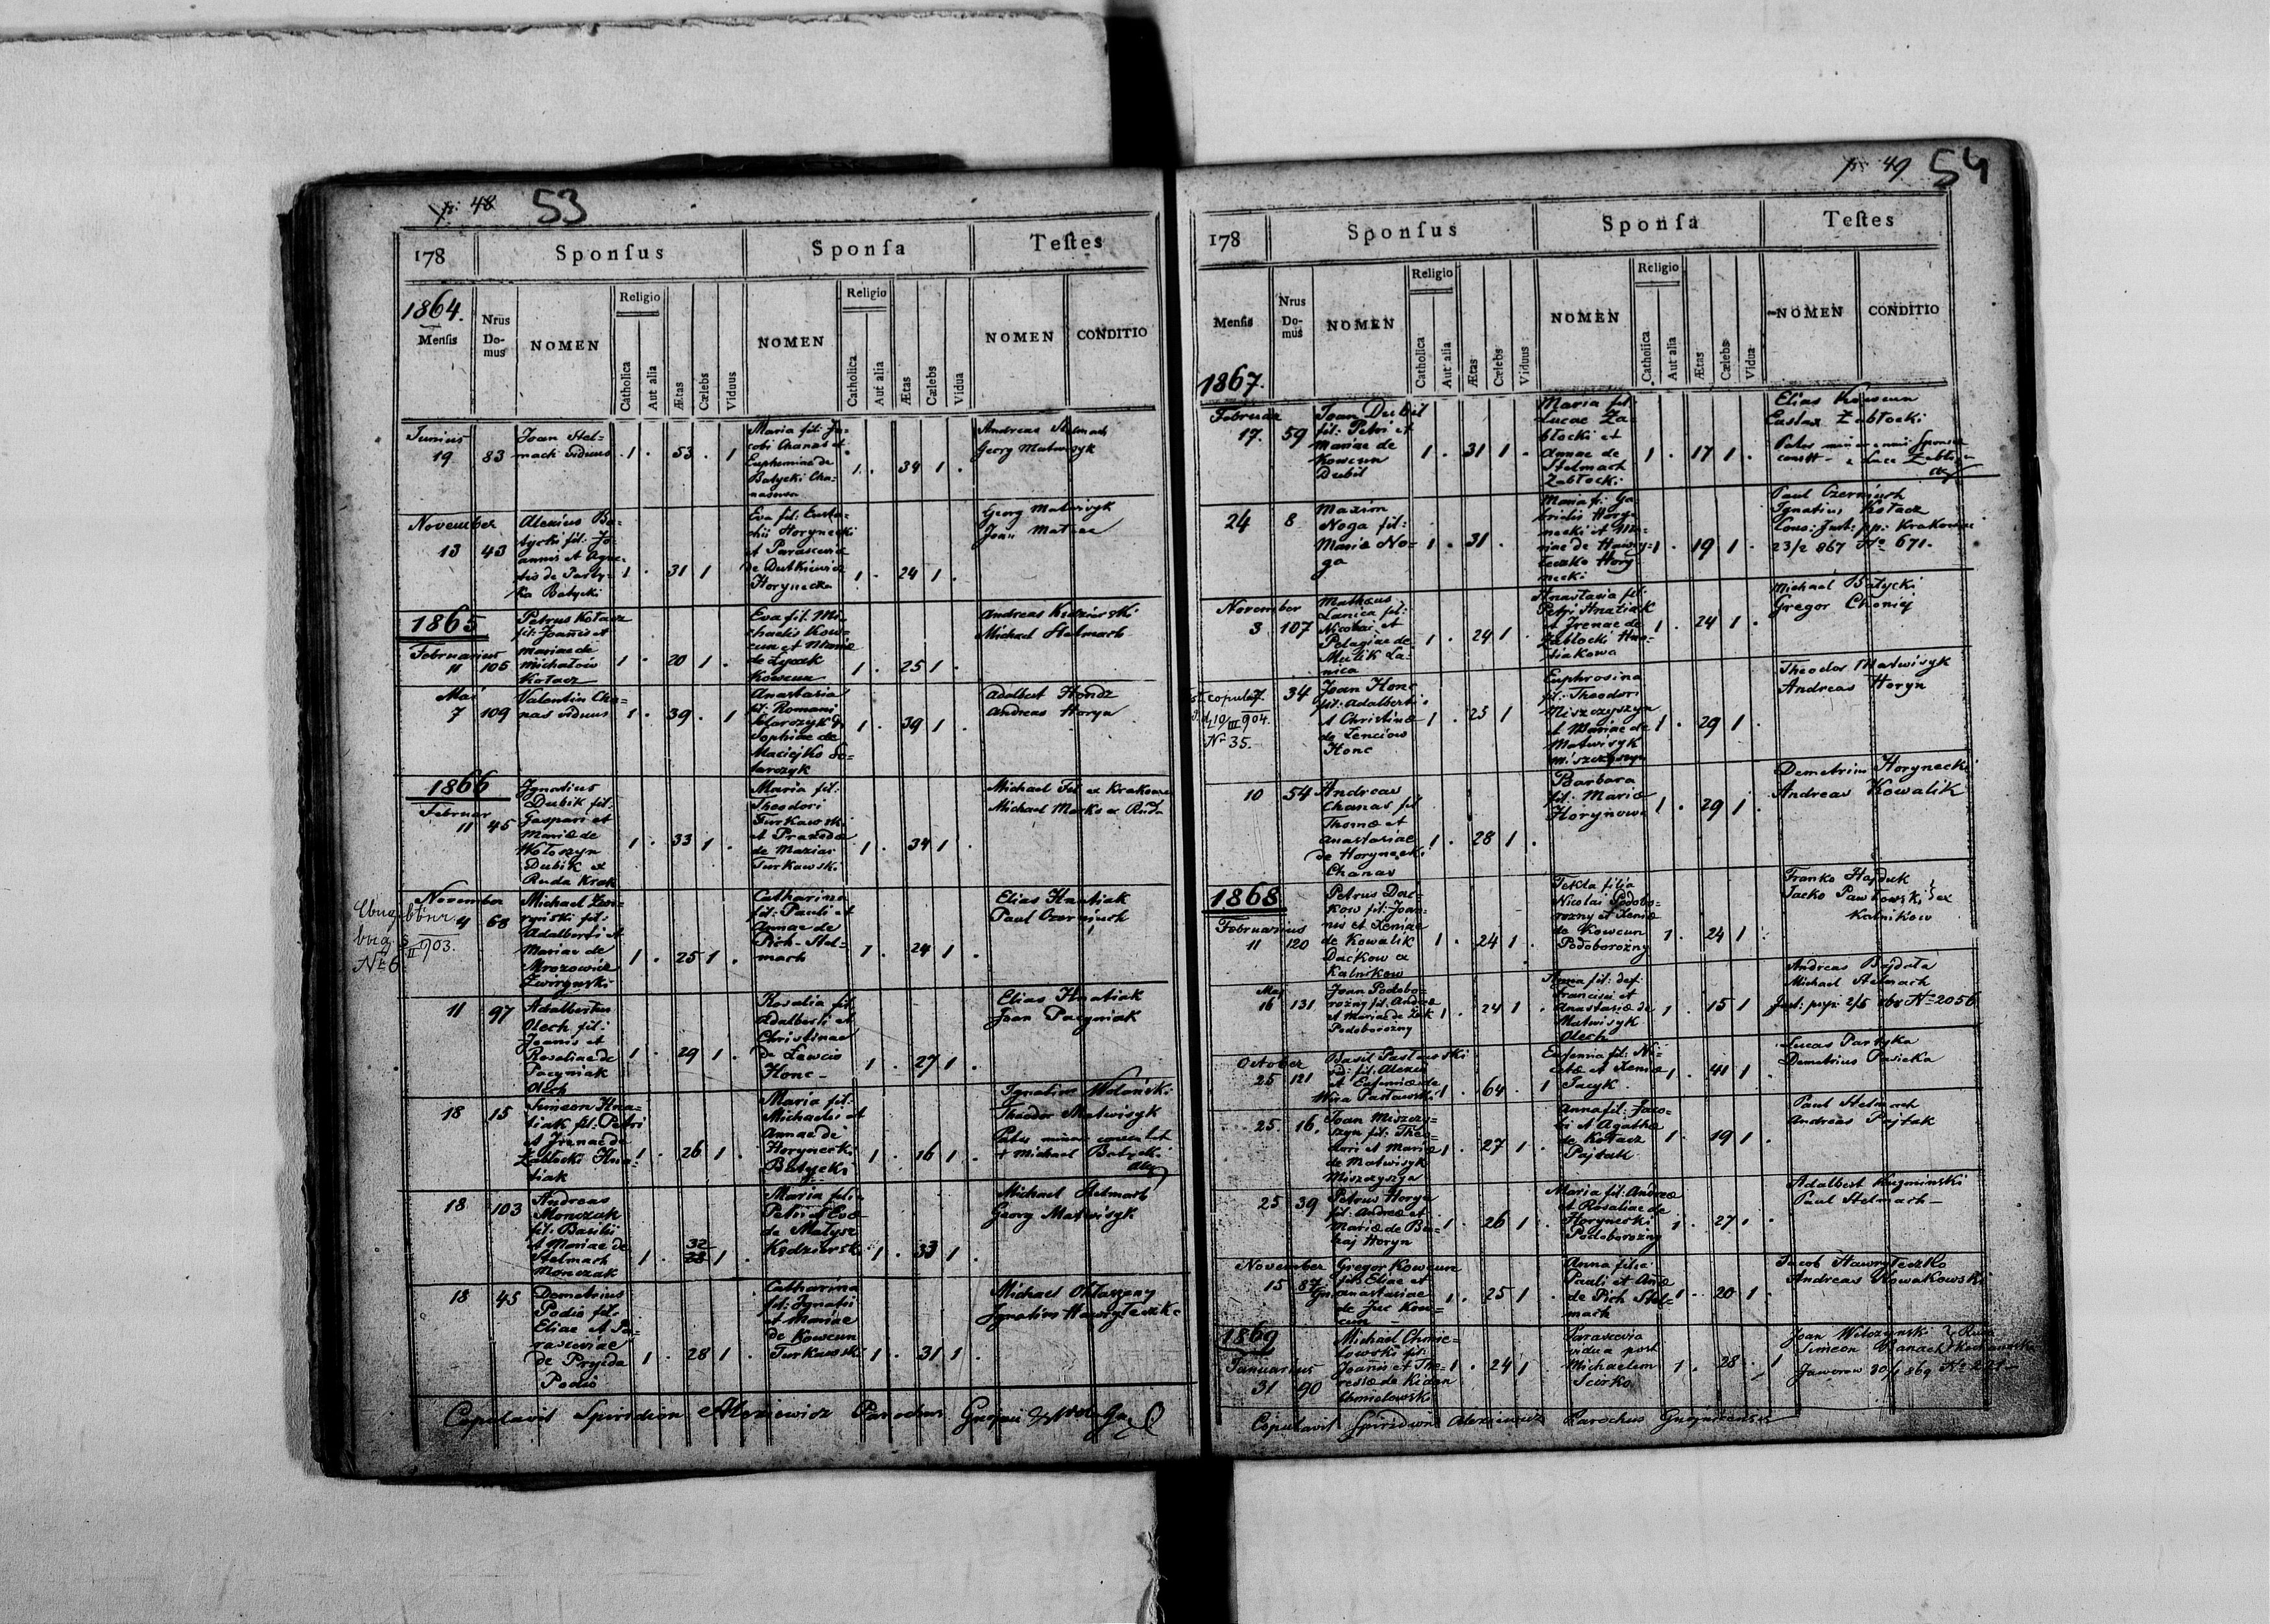 p. 48 53
178 Sponſus Sponſa Teſtes
1864.
Menſis
Nrus Do-mus
NOMEN
Religio
Catholica
Aut alia
Ætas
Cælebs
Viduus
NOMEN
Religio
Catholica
Aut alia
Ætas
Cælebs
Vidua
NOMEN
CONDITIO
Junius
19 83
Joan Stel=
mach viduus 1 . 53 . 1
Maria fil: Ja-
cobi Chanas et
Euphemiae de
Batycki Cha-
1 . 34 1 .
Andreas Stelmach
Georg Matwisyk
November
13 43
Alexius Ba-
tycki fil: Jo-
annis et Agne-
Batycki
1 . 31 1
Eva fil: Eusta-
chii Horynecki
et Parascevia
de Dutkiewicz
Horynecka
1 . 24 1 .
Georg Matwisyk
Joan
1865
Februarius
11 106
Petrus Kołacz
fil: Joanis et
Mariae de
Michałow
Kołacz
1 . 20 1 .
Eva fil. Mi-
chaelis Kow-
cun et Mariæ
de Łysak
Kowcun
1 . 25 1 .
Andreas Kędzierski
Michael Stelmach
Mai
7 109
Valentin Cha-
nas viduus 1 . 39 . 1
Anastasia
fil: Romani
Sofarczyk &
Sophiae de
Maciejko So-
farczyk
1 . 39 1 .
Adalbert Hondz
Andreas Horyn
1866
Februar
11 45
Ignatius
Dubik fil:
Gaspari et
Mariæ de
Wołoszyn
Dubik ex
Ruda Krak
1 . 33 1 .
Maria fil:
Theodori
Turkawski
et Praxedæ
de Maziar
Turkawski
1 . 34 1 .
Michael Fil ex Krakowec
Michael Marko ex Ruda
November
4 68
II 903.
Nr 6.
Michael Zwi-
rynski fil:
Adalberti et
Mariae de
Mrozowicz
Zwirynski
1 . 25 1 .
Catharina
fil: Pauli et
Annae de
Pich-Stel=
mach
1 . 24 1 .
Elias Hnatiak
Paul Czerniuch
11 97
Adalbertus
Olech fil:
Joanis et
Rosaliae de
Pacyniak
Olech
1 . 29 1 .
Rosalia fil
Adalberti et
Christinae
de Lewcio
Honc -
1 . 27 1 .
Elias Hnatiak
Joan Pacyniak
18 15
Simeon Hna-
tiak fil. Petri
et Irenae de
Zabłocki Hna-
tiak
1 . 26 1 .
Maria fil.
Michaelis et
Annae de
Horynecki
Batycki
1 . 16 1 .
Ignatius Wolański
Theodor Matwisyk
Michael Batycki
18 103
Andreas
Monczak
fil. Basilii
et Mariae de
Stelmach
Monczak
1 . 32 38 1 .
Maria filia
Petri et Evæ
de Małysz
Kędzierski
1 . 33 1 .
Michael Stelmach
Georg Matwisyk
18 45
Demetrius
Podio fil.
Eliae et Pa-
rasceviae
de Pryjda
Podio
1 . 28 1 .
Catharina
fil: Ignatii
et Mariae
de Kowcun
Turkawski
1 . 31 1 .
Michael
Ignatius Hawryłeczko
Copulavit Spiridion Alexiewicz Parochus
p. 49 54
178 Sponſus Sponſa Teſtes
Menſis
Nrus Do-mus
NOMEN
Religio
Catholica
Aut alia
Ætas
Cælebs
Viduus
NOMEN
Religio
Catholica
Aut alia
Ætas
Cælebs
Vidua
NOMEN
CONDITIO
1867.
Februar
17. 59
Joan Dubil
fil: Petri et
Mariae de
Kowcun
Dubil
1 . 31 1 .
Maria fil:
Lucae Za-
błocki et
Annae de
Stelmach
Zabłocki
1 . 17 1 .
Elias Kowcun
Eustax Zabłocki
24 8
Maxim
Noga fil:
Mariæ No-
ga
1 . 31 .
Maria fi: Ga-
brielis Hory-
necki et Ma-
riae de Hawry-
łeczko Hory
necki
1 . 19 1 .
Paul Czerniuch
Ignatius Kołacz
Krakowiec
23/2 867 No 671.
November
3 107
Matheus
Lanica fil:
Nicolai et
Pelagiae de
Mulik La-
nica
1 . 24 1 .
Anastasia fil:
Petri Hnatiak
et Irenae de
Zabłocki Hna-
tiakowa
1 . 24 1 .
Michael Batycki
Gregor Choniy
copulat. 34
10/III 904.
Nr 35.
Joan Honc
fil: Adalberti
et Christinæ
de Lencio
Honc
1 . 25 1 .
Euphrosina
fil: Theodori
Miszczyszyn
et Mariae de
Matwisyk
Miszczyszyn
1 . 29 1 .
Theodor Matwisyk
Andreas Horyn
10 54
Andreas
Chanas fil
Thomæ et
Anastasiae
de Horynecki
Chanas
1 . 28 1 .
Barbara
fil: Mariæ
Horynowa
1 . 29 1 .
Demetrius Horynecki
Andreas Kowalik
1868
Februarius
11 120
Petrus Dac-
kow fil: Joan-
nis et Xeniae
de Kowalik
Dackow ex
Kalnikow
1 . 24 1 .
Tekla filia
Nicolai Podobo-
rozny et Xeniæ
de Kowcun
Podoborozny
1 . 24 1 .
Franko Hajduk
Jacko Pawłowski ex
Kalnikow
Maj
16 131
Joan Podobo-
rozny fil. Andreæ
et Mariae de
Podoborozny
1 . 24 1 .
Anna fil: def.
Francisci et
Anastasiæ de
Matwisyk
Olech
1 . 15 1
Andreas Bajdała
Michael Stelmach
2/5 868 No 2056
October
25 121
Basil Pasławski
fil. Alexii
et Eufemiæ de
Pasławski
1 . 64 . 1
Eufemia fil: Ni-
cetæ et Xeniæ
Jacyk
1 . 41 1 .
Lucas Partyka
Demetrius Pasieka
25. 16.
Joan Miszczy-
szyn fil: Theo-
dori et Mariæ
de Matwisyk
Miszczyszyn
1 . 27 1 .
Anna fil: Jaco-
bi et Agathæ
de Kołacz
Pajtak
1 . 19 1 .
Paul Stelmach
Andreas Pajtak
25 39
Petrus Horyn
fil: Andreæ et
Mariæ de Bu-
haj Horyn
1 . 26 1 .
Maria fil: Andreæ
et Rosaliae de
Horynecki
Podoborozny
1 . 27 1 .
Adalbert Kuzminski
Paul Stelmach -
November
15 87
Gregor Kowcun
fil: Eliae et
Anastasiae
de Juc Kow=
cun
1 . 25 1 .
Anna filia
Pauli et Annæ
de Pich Stel-
mach
1 . 20 1 .
Jacob Hawryłeczko
Andreas Nowakowski
1869
Januarius
31 90
Michael Chmie-
lowski fil:
Joanis et The-
resiæ de Kidan
Chmielowski
1 . 24 1 .
Parascevia
vidua post
Michaelem
Scirko
1 . 28 . 1
Joan Wilczynski
Simeon
Jaworow 30/1 869
Copulavit Spiridion Alexiewicz Parochus Gnojnicensis